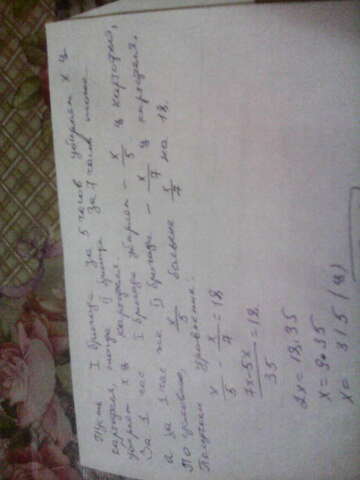 Пусть I бригада за 5 часов убирает x ц
картофеля, тогда II бригада за 7 часов тоже
убирает x ц картофеля.
За 1 час I бригада убирает - x/5 ц картофеля,
а за 1 час же II бригада - x/7 ц картофеля.
По условию, x/5 больше x/7 на 18.
Получим уравнение:
x/5 - x/7 = 18
7x-5x/35 = 18
2x = 18·35
x = 9·35
x = 315 (ц)